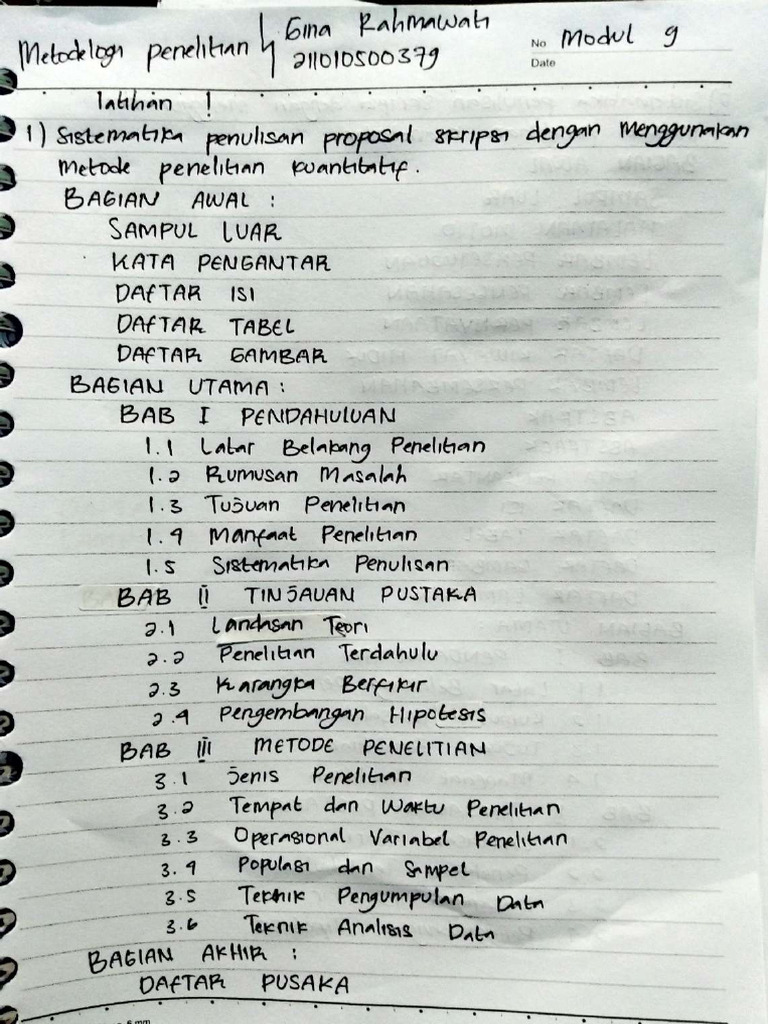 Metodelogi penelitian Gina Rahmawati No Modul 9
211010500379 Date
latihan !
1) Sistematika penulisan proposal skripsi dengan menggunakan
metode penelitian kuantitatif.
BAGIAN AWAL :
SAMPUL LUAR
KATA PENGANTAR
DAFTAR ISI
DAFTAR TABEL
DAFTAR GAMBAR
BAGIAN UTAMA :
BAB I PENDAHULUAN
1.1 Latar Belakang Penelitian
1.2 Rumusan Masalah
1.3 Tujuan Penelitian
1.4 Manfaat Penelitian
1.5 Sistematika Penulisan
BAB II TINJAUAN PUSTAKA
2.1 Landasan Teori
2.2 Penelitian Terdahulu
2.3 Karangka Berfikir
2.4 Pengembangan Hipotesis
BAB III METODE PENELITIAN
3.1 Jenis Penelitian
3.2 Tempat dan Waktu Penelitian
3.3 Operasional Variabel Penelitian
3.4 Populasi dan Sampel
3.5 Teknik Pengumpulan Data
3.6 Teknik Analisis Data
BAGIAN AKHIR :
DAFTAR PUSAKA